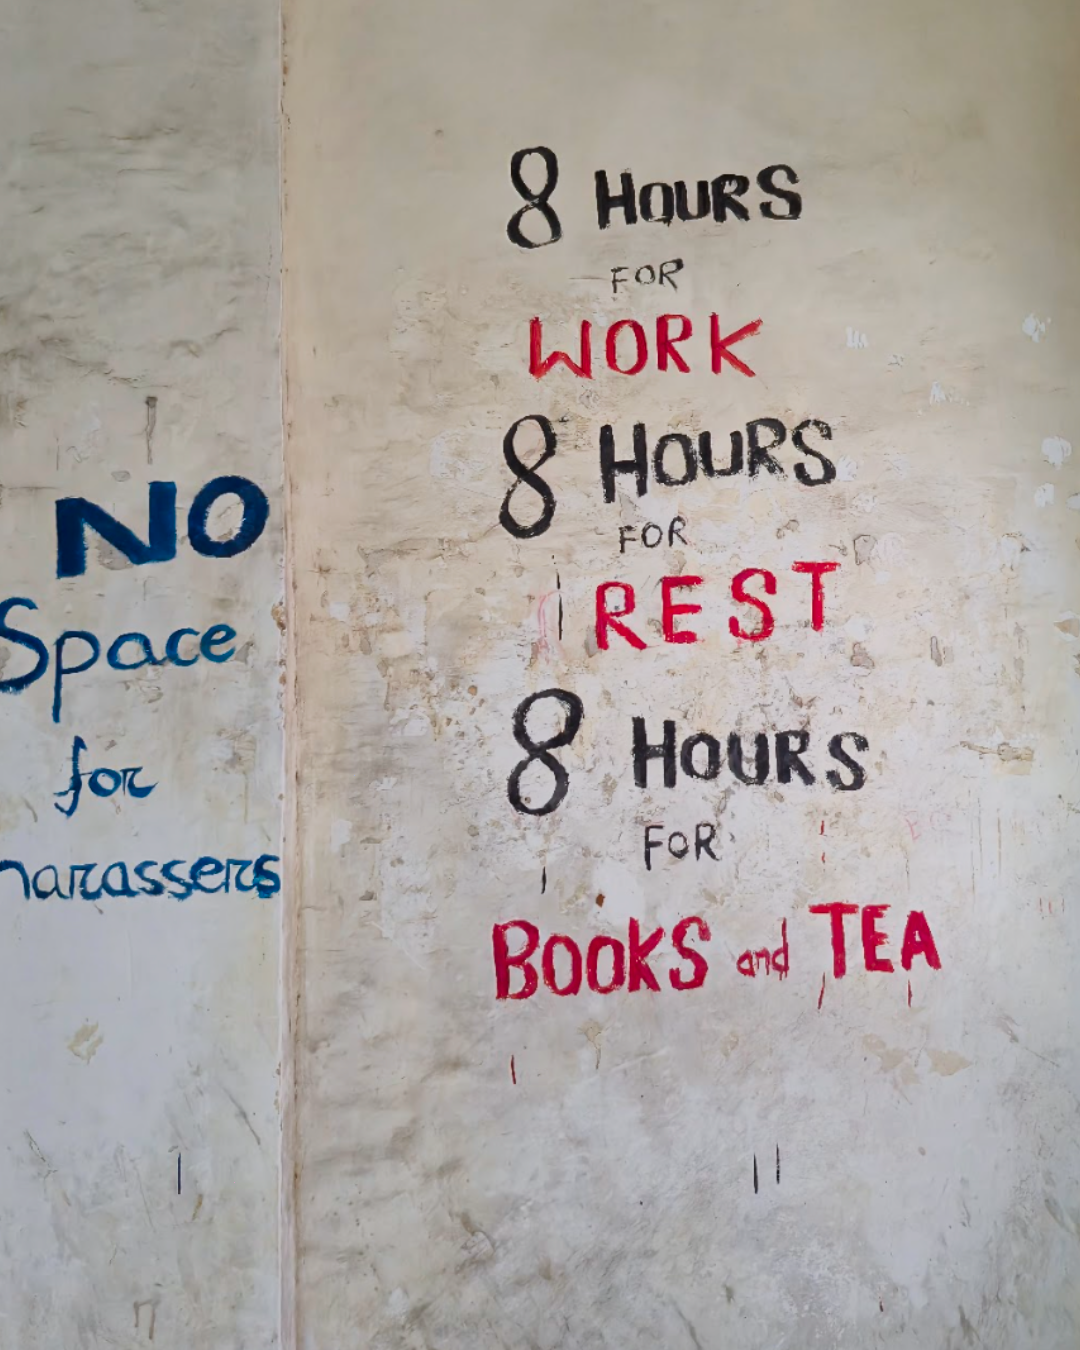 NO
Space
for
harassers
8 HOURS
FOR
WORK
8 HOURS
FOR
REST
8 HOURS
FOR
BOOKS and TEA